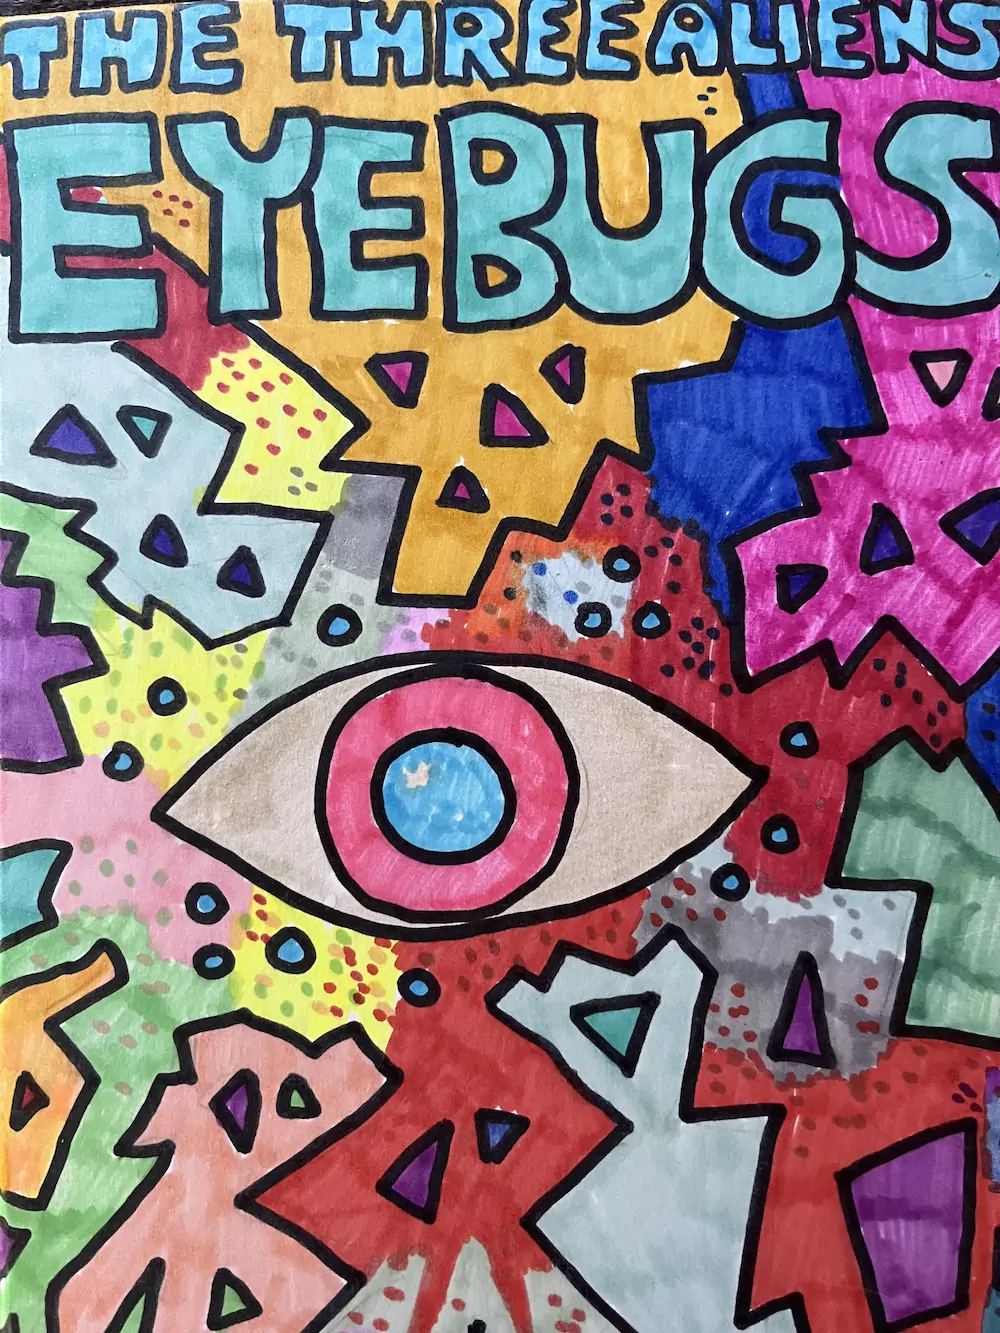 THE THREE ALIENS
EYEBUGS